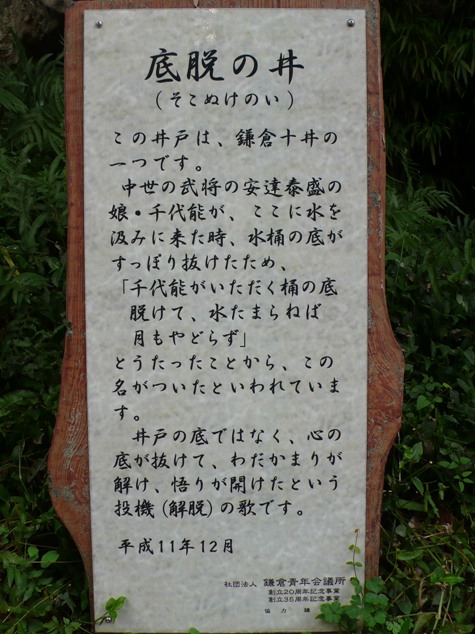 底脱の井
(そこぬけのい)
この井戸は、鎌倉十井の
一つです。
中世の武将の安達泰盛の
娘・千代能が、ここに水を
汲みに来た時、水桶の底が
すっぽり抜けたため、
「千代能がいただく桶の底
脱けて、水たまらねば
月もやどらず」
とうたったことから、この
名がついたといわれていま
す。
井戸の底ではなく、心の
底が抜けて、わだかまりが
解け、悟りが開けたという
投機(解脱)の歌です。
平成11年12月
社団法人 鎌倉青年会議所
創立20周年記念事業
創立35周年記念事業
協力